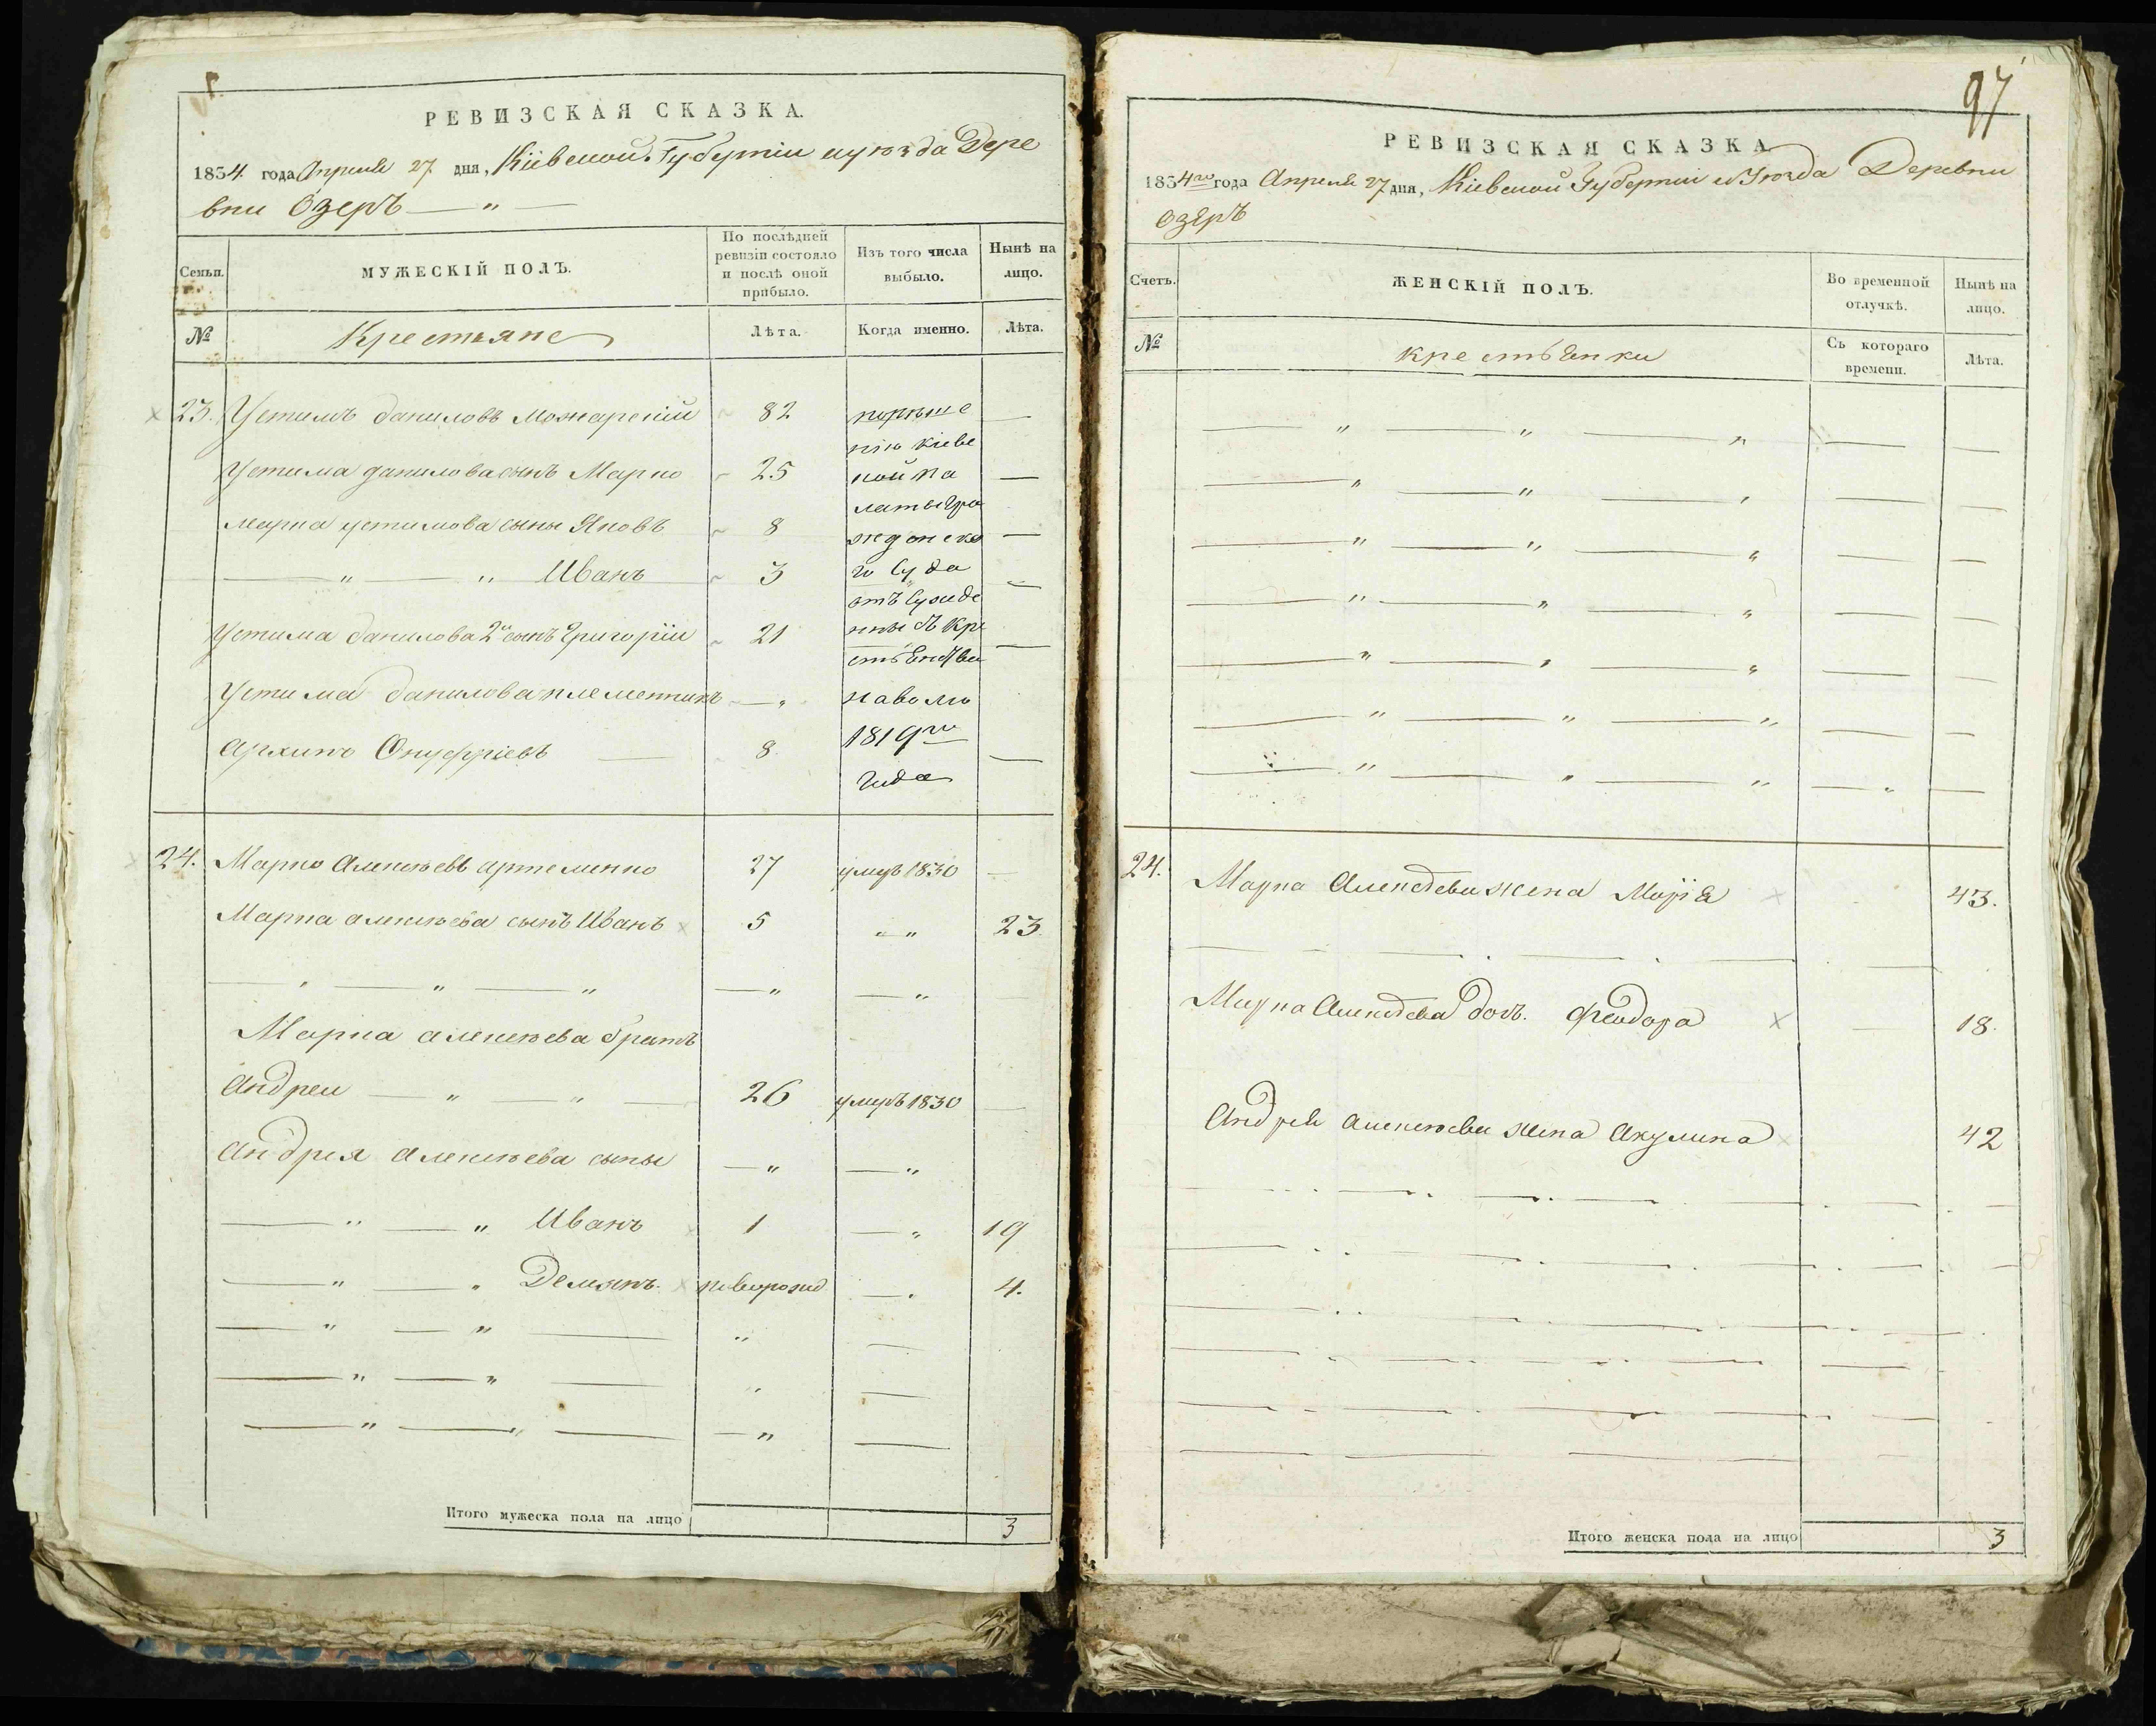 РЕВИЗСКАЯ СКАЗКА.
1834. года Апреля 27. дня, Кіевской Губерніи и уѣзда Дере
вни Озеръ — " —
Семьи.
МУЖЕСКІЙ ПОЛЪ.
По послѣдней
ревизіи состояло
и послѣ оной
прибыло.
Изъ того числа
выбыло.
Нынѣ на
лицо.
№
Крестьяне
Лѣта.
Когда именно.
Лѣта.
23. Устимъ даниловъ Можарскій 82 порѣше —
нію Кіевс
Устима данилова сынъ Марко 25 кой па —
латы Гра
Марка устимова сыны Яковъ 8 жданска —
— " — " Иванъ 3 го Суда —
отъ Сужде
Устима данилова 2й сынъ Григорій 21 нны съ Кре —
Устима данилова племенникъ — " наволю
1819го
Архипъ Онуфріевъ — 8 —
Года
24. Марко Алексѣевъ артеменко 27 умеръ 1830 —
Марка алексѣева сынъ Иванъ 5 " " 23
— " — " — " — " — "
Марка алексѣева братъ
Андрей — " — " — 26 умеръ 1830 —
Андрея алексѣева сыны — " — "
— " — " Иванъ 1 — " 19
— " — " Демянъ. новорожд. — " 4.
— " — " — " —
— " — " — " —
— " — " — — " —
Итого мужеска пола на лицо 3
97
РЕВИЗСКАЯ СКАЗКА
1834го года Апреля 27 дня, Кіевской Губерніи и Уѣзда Деревни
Озеръ
Счетъ.
ЖЕНСКІЙ ПОЛЪ.
Во временной
отлучкѣ.
Нынѣ на
лицо.
№
крестьянки
Съ котораго
времени.
Лѣта.
— " — " — " — —
— " — " — " — —
— " — " — " — —
— " — " — " — —
— " — " — " — —
— " — " — " — —
— " — " — " — " —
24. Марка Алексѣева жена Марія 43.
Марка Алексѣева доч. Феодора — 18.
Андрея алексѣева жена Акулина 42
Итого женска пола на лицо 3